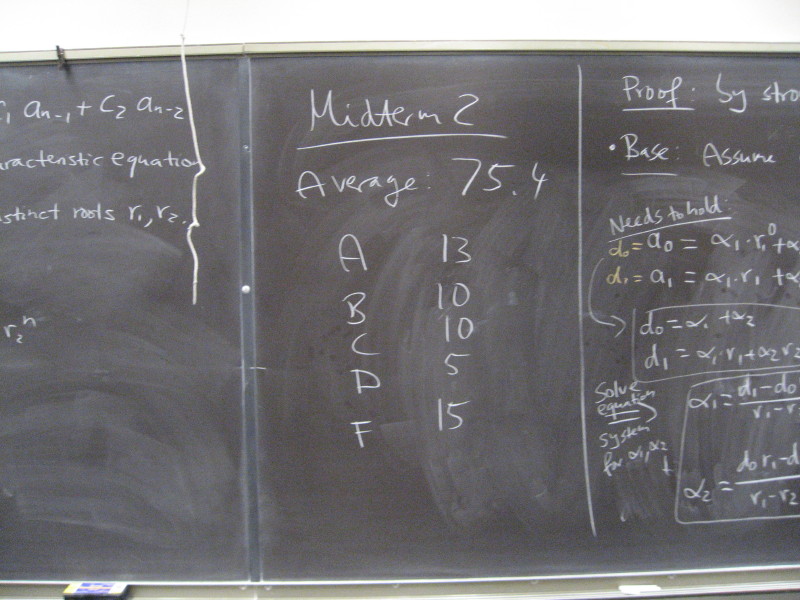 C₁ aₙ₋₁ + C₂ aₙ₋₂
aracteristic equation
istinct roots r₁, r₂.
r₂ⁿ
Midterm 2
Average: 75.4
A 13
B 10
C 10
D 5
F 15
Proof: by stro
• Base: Assume
Needs to hold:
d₀ = a₀ = α₁·r₁⁰ + α
d₁ = a₁ = α₁·r₁ + α
d₀ = α₁ + α₂
d₁ = α₁·r₁ + α₂ r₂
Solve
equation
system
for α₁, α₂
α₁ = d₁ - d₀ / r₁ - r₂
α₂ = d₀ r₁ - d / r₁ - r₂